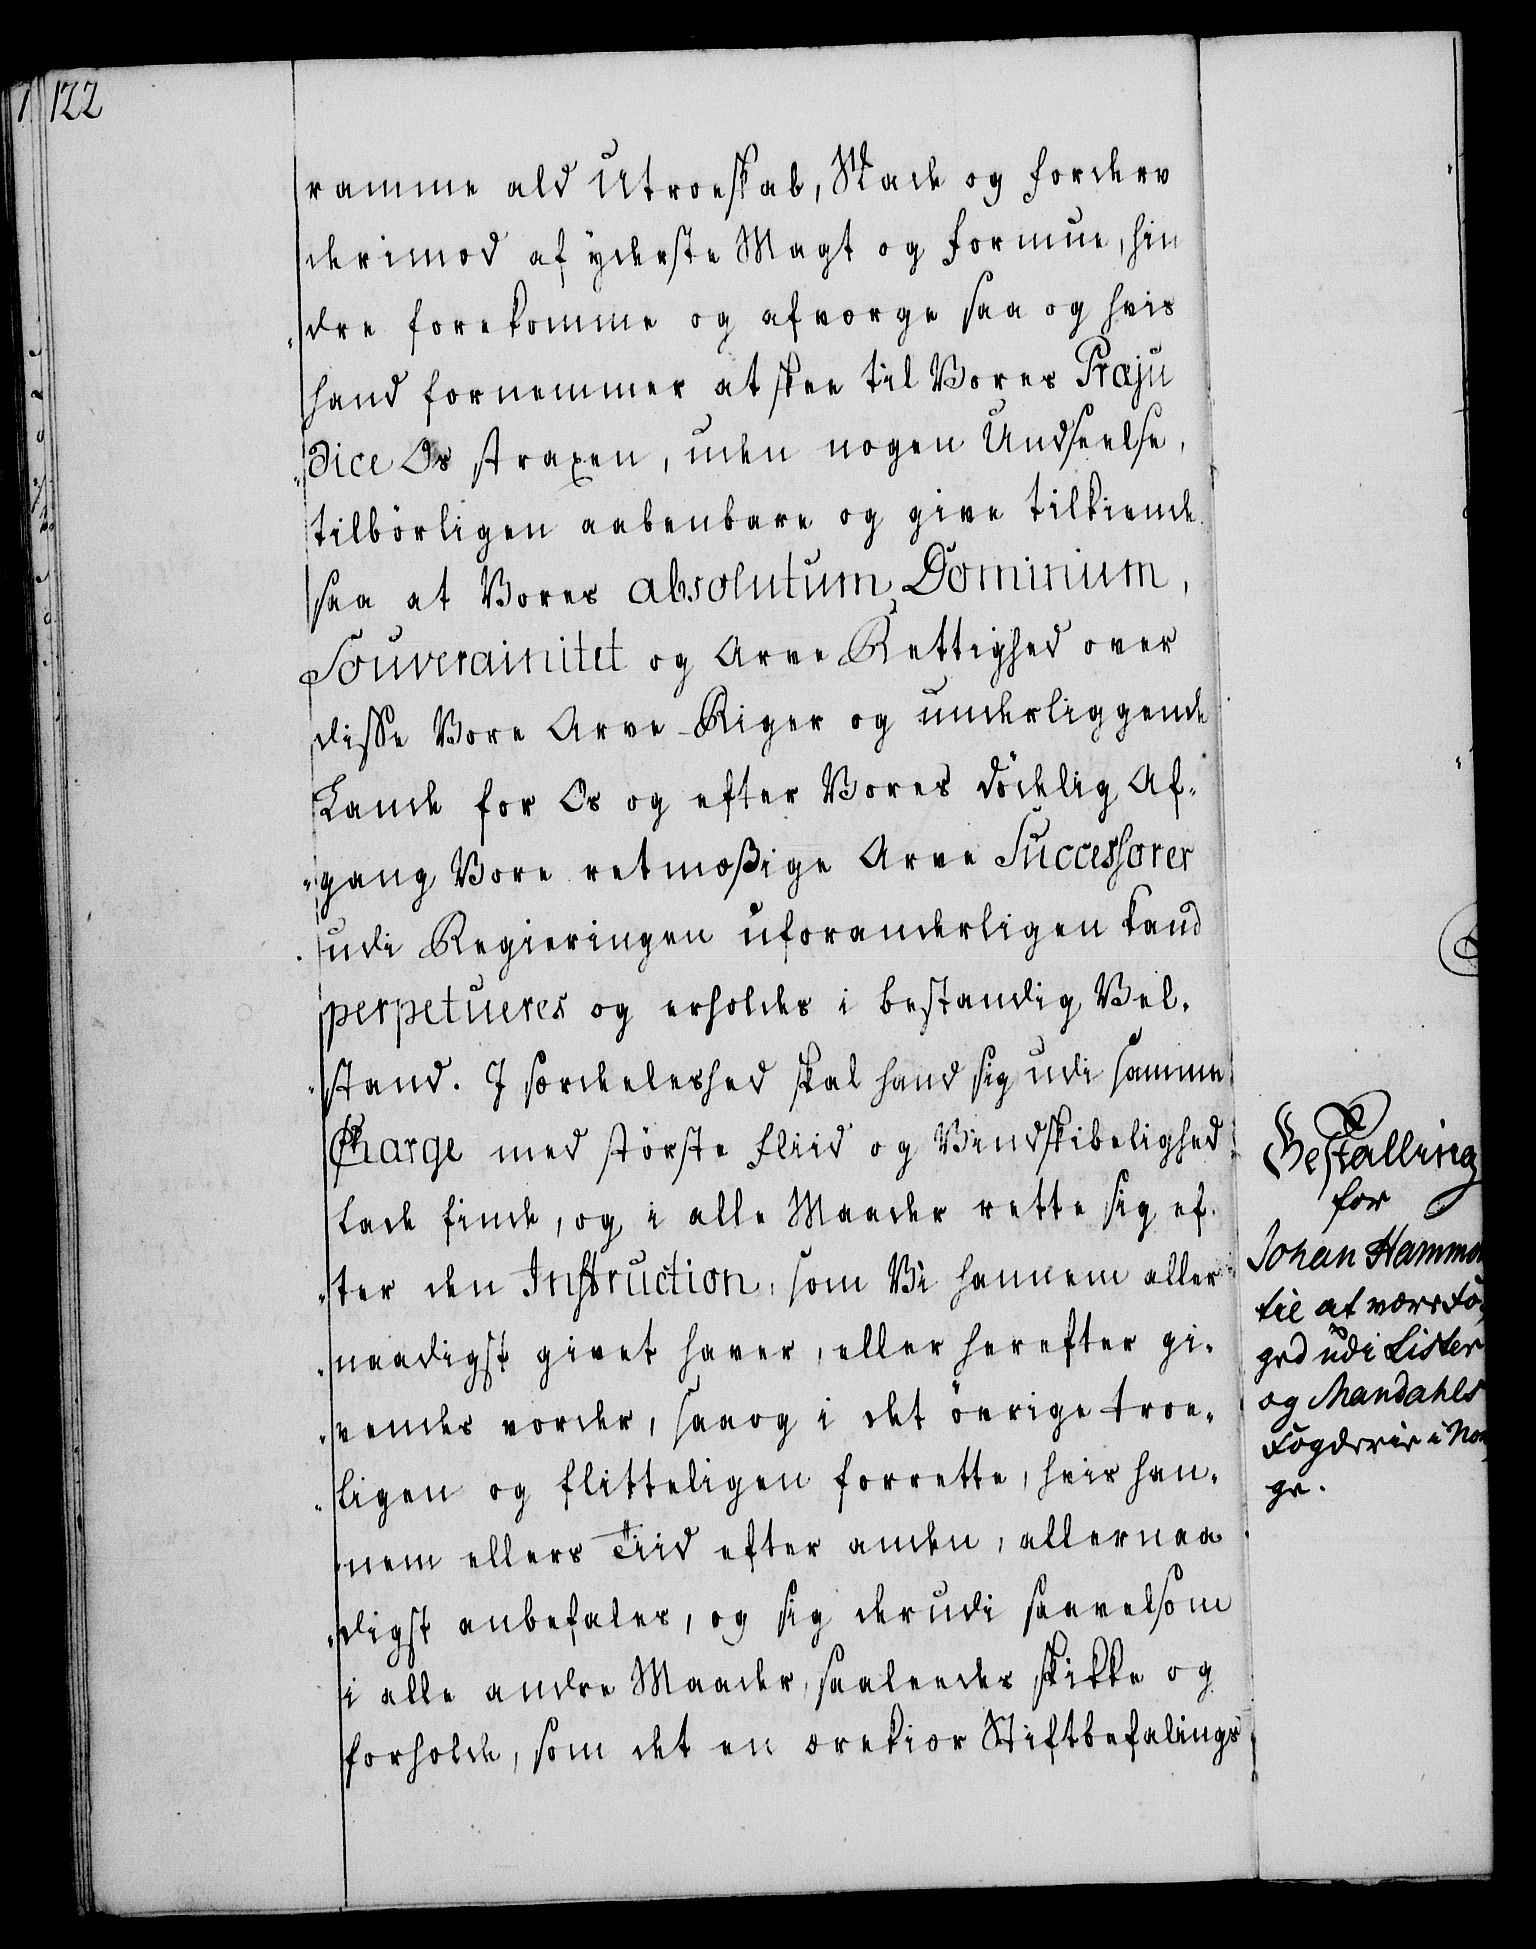 122
ramme ald Utroeskab, Skade og fordærv
derimod af yderste Magt og formue, hin
dre forekomme og afværge saa og hvis
hand fornemmer at skee til Vores Præju
dice Os straxen, uden nogen Undseelse,
tilbörligen aabenbare og give tilkiende
saa at Vores absolutum Dominium,
Souverainitet og Arve Rettighed over
disse Vore Arve-Riger og underliggende
Lande for Os og efter Vores dödelig Af-
gang Vore retmæßige Arve Successorer
udi Regieringen uforanderligen kand
perpetueres og erholdes i bestandig Vel-
stand. I særdeleshed skal hand sig udi samme
Charge med störste Fliid og Vindskibelighed
lade finde, og i alle Maader rette sig ef-
ter den Instruction, som Vi hannem aller
naadigst givet haver, eller herefter gi-
vendes vorder, saaog i det övrige troe-
ligen og flitteligen forrette, hvis han-
nem ellers Tiid efter anden, allernaa
digst anbefales, og sig derudi saavelsom
i alle andre Maader, saaleedes skikke og
forholde, som det en ærekiær Stiftbefalings
Bestalling
for
Johan Hammo
til at være Fo-
ged udi Lister
og Mandahls
Fogderie i Nor
ge.